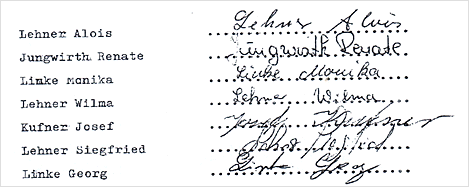 Lehner Alois Lehner Alois
Jungwirth Renate Jungwirth Renate
Linke Monika Linke Monika
Lehner Wilma Lehner Wilma
Kufner Josef Josef Kufner
Lehner Siegfried
Linke Georg Linke Georg